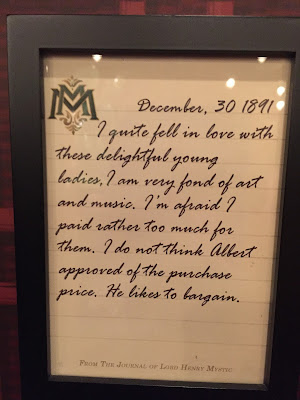 MM
December, 30 1891
I quite fell in love with
these delightful young
ladies, I am very fond of art
and music. I'm afraid I
paid rather too much for
them. I do not think Albert
approved of the purchase
price. He likes to bargain.
From The Journal of Lord Henry Mystic